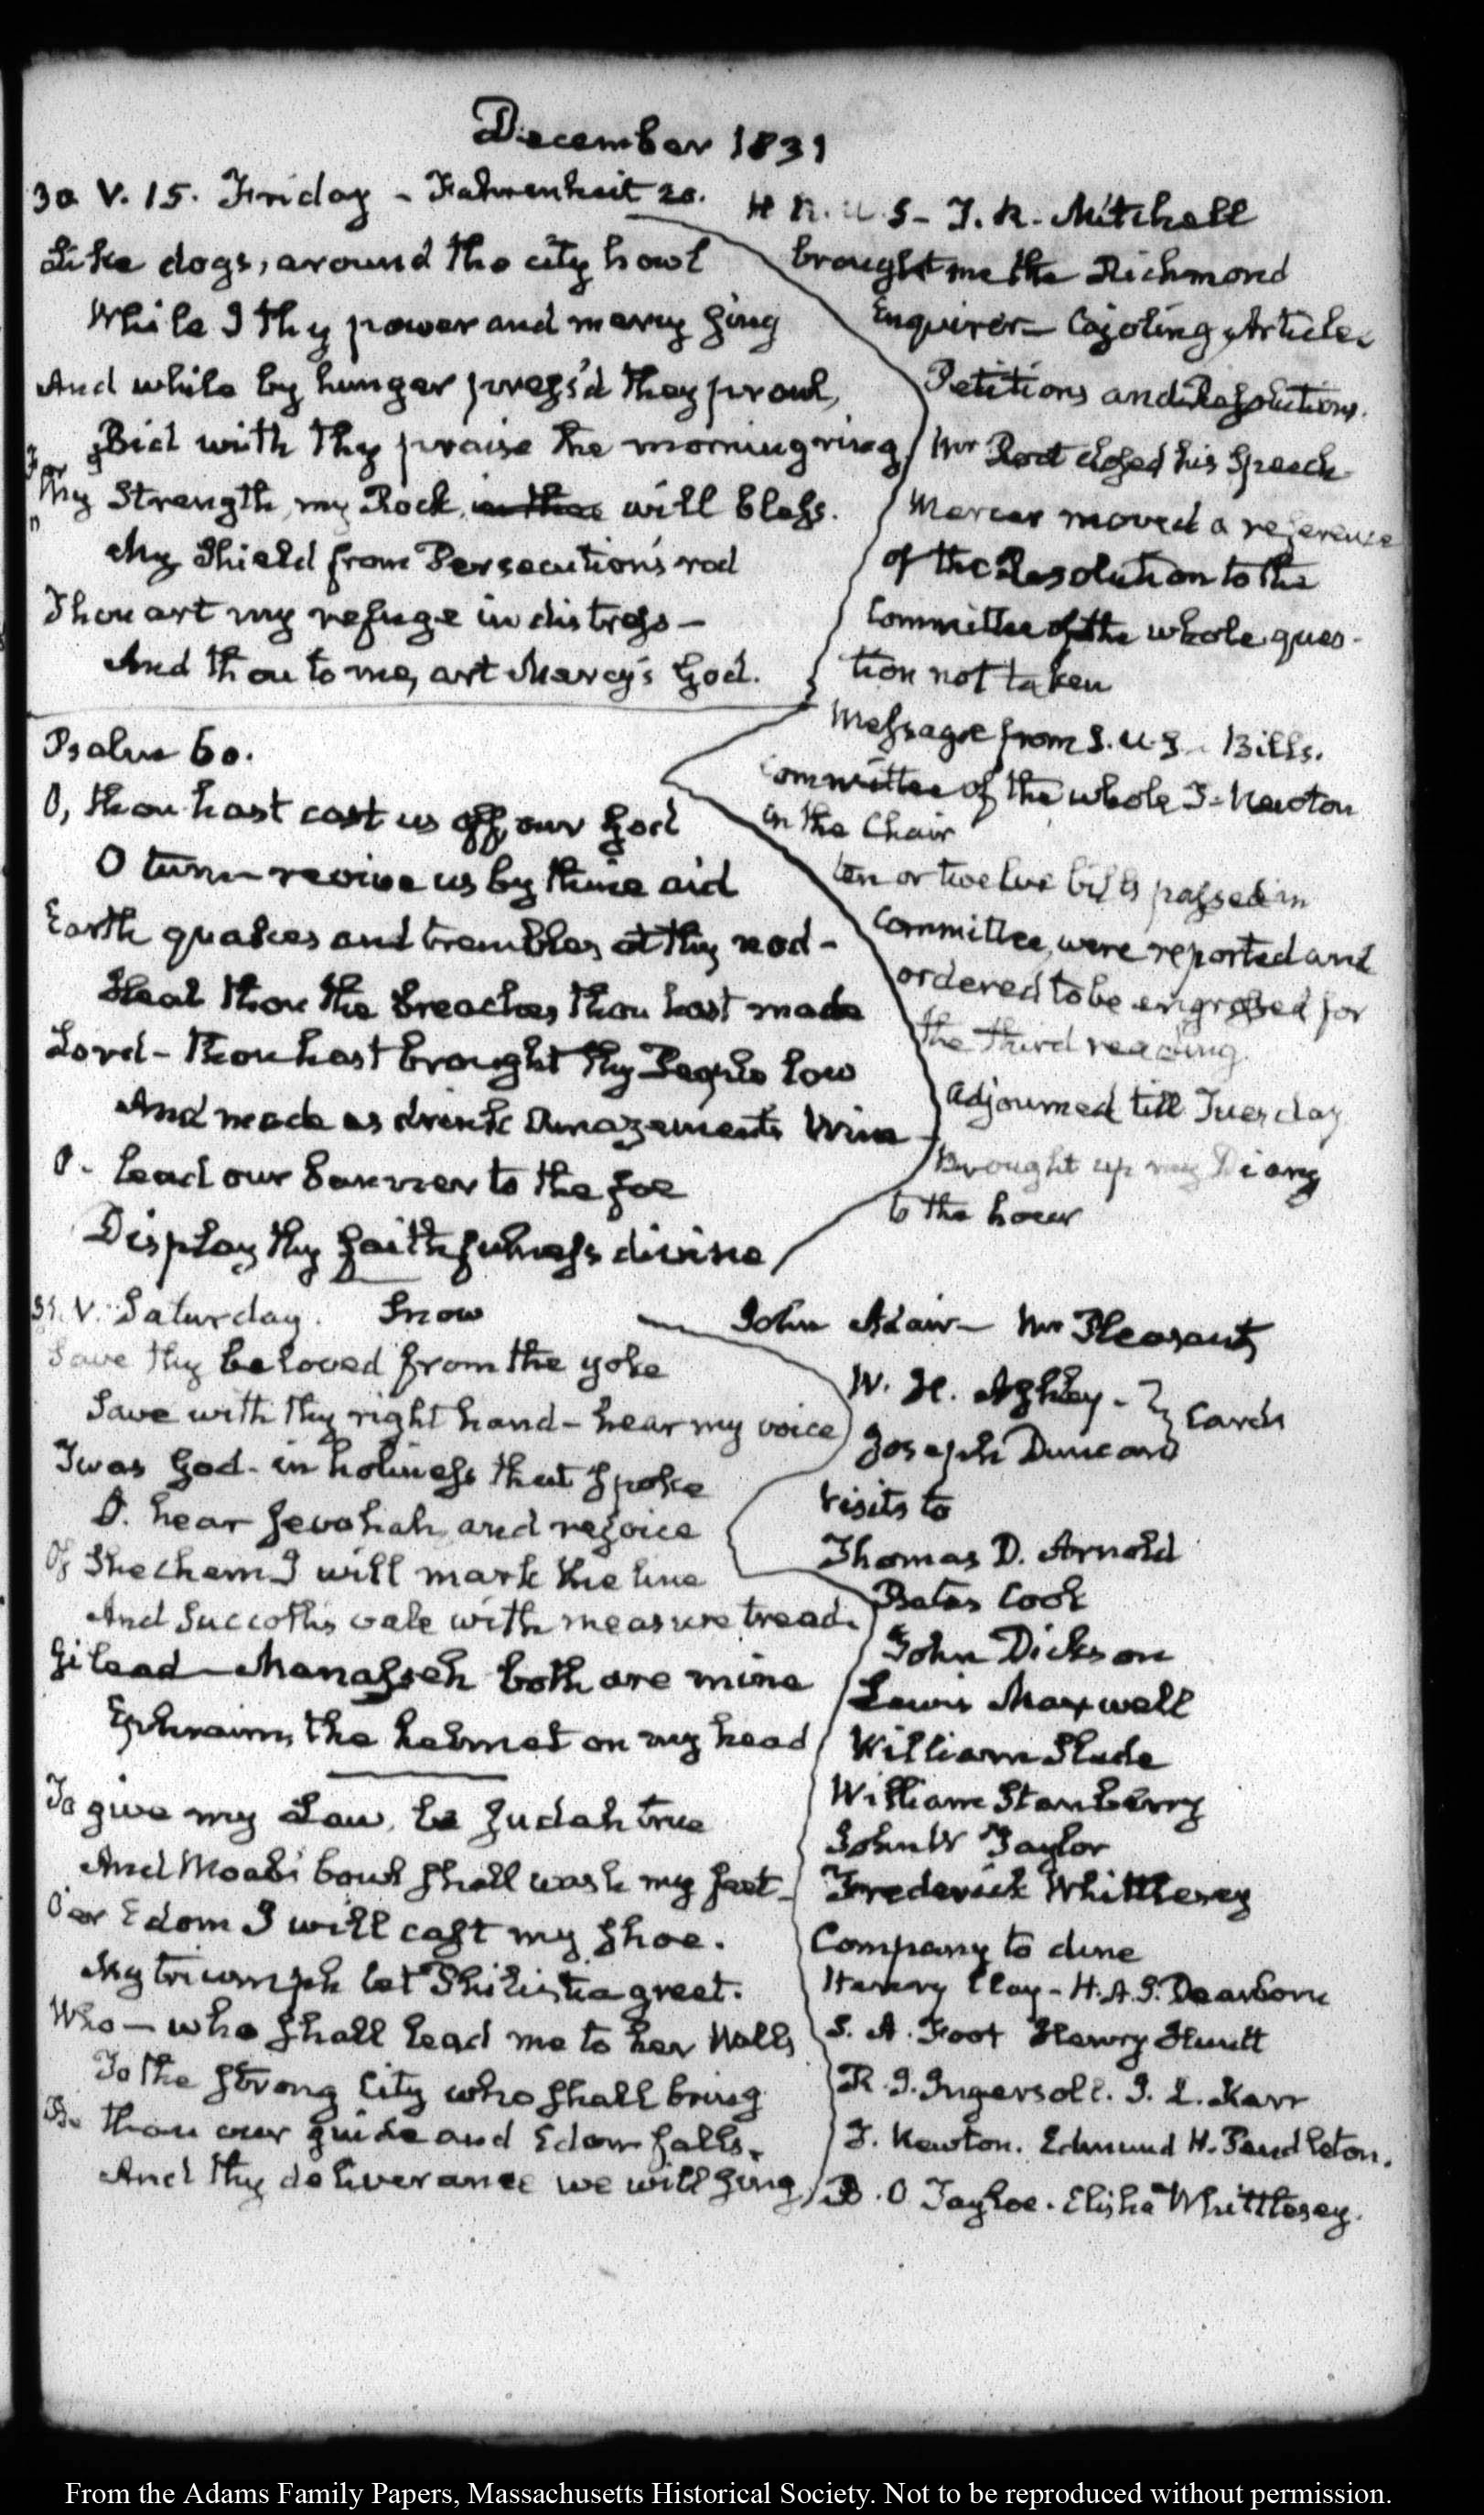 December 1831
30. V. 15. Friday - Fahrenheit 20.
Like dogs, around the city howl
While I thy power and mercy sing
And while by hunger press'd they prowl,
Bid with thy praise the morning ring
For
Thy Strength, my Rock, will bless.
My Shield from Persecution's rod
Thou art my refuge in distress -
And thou to me, art Mercy's God.
Psalm 60.
O, thou hast cast us off, our God
O turn revive us by thine aid
Earth quakes and trembles at thy nod -
Heal thou the breaches thou hast made
Lord - Thou hast brought thy People low
And made us drink Amazements Wine
O - lead our banner to the foe
Display thy faithfulness divine
H R. U S - T. R. Mitchell
brought me the Richmond
Enquirer - Cajoling Articles
Petitions and Resolutions.
Mr Root closed his Speech
Mercer moved a reference
of the Resolution to the
Committee of the whole ques-
tion not taken
Message from S. U. S - Bills.
Committee of the whole T. Newton
in the Chair
ten or twelve bills passed in
Committee, were reported and
ordered to be engrossed for
the third reading
adjourned till Tuesday
Brought up my Diary
to the hour
31. V. Saturday. Snow
Save thy beloved from the yoke
Save with thy right hand - hear my voice
Twas God - in holiness that spoke
O. hear Jevohah, and rejoice
Of Shechem I will mark the line
And Succoth's vale with measure tread.
Gilead - Manasseh both are mine
Ephraim, the helmet on my head
To give my Law, be Judah true
And Moab's bowl shall wash my feet -
O'er Edom I will cast my shoe.
My triumph let Philistia greet.
Who - who shall lead me to her Walls
To the strong City who shall bring
Be thou our guide and Edom falls.
And thy deliverance we will sing
John Adair - Mr Pleasants
W. H. Ashley -
Joseph Duncan } Cards
Visits to
Thomas D. Arnold
Bates Cook
John Dickson
Lewis Maxwell
William Slade
William Stanberry
John W Taylor
Frederick Whittlesey
Company to dine
Henry Clay - H. A. S. Dearborn
S. A. Foot Henry Hewitt
R. I. Ingersoll. J. L. Kerr
T. Newton. Edmund H. Pendleton.
B. O Tayloe. Elisha Whittlesey.
From the Adams Family Papers, Massachusetts Historical Society. Not to be reproduced without permission.